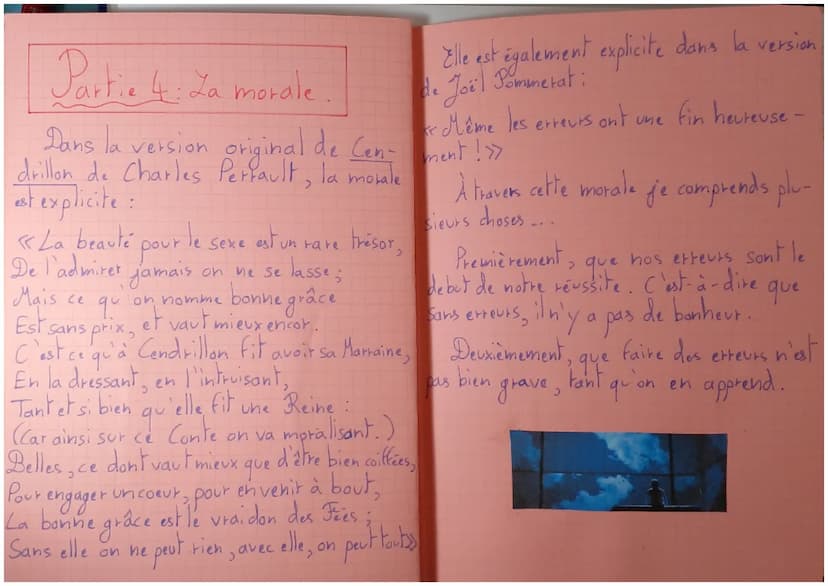 Partie 4 : La morale.
Dans la version original de Cen-
drillon de Charles Perrault, la morale
est explicite :
« La beauté pour le sexe est un rare trésor,
De l'admirer jamais on ne se lasse ;
Mais ce qu'on nomme bonne grâce
Est sans prix, et vaut mieux encor.
C'est ce qu'à Cendrillon fit avoir sa Marraine,
En la dressant, en l'intruisant,
Tant et si bien qu'elle fit une Reine :
(Car ainsi sur ce Conte on va moralisant.)
Belles, ce dont vaut mieux que d'être bien coiffées,
Pour engager un coeur, pour en venir à bout,
La bonne grâce est le vrai don des Fées ;
Sans elle on ne peut rien, avec elle, on peut tout»
Elle est également explicite dans la version
de Joël Pommerat :
« Même les erreurs ont une fin heureuse-
ment ! »
À travers cette morale je comprends plu-
sieurs choses...
Premièrement, que nos erreurs sont le
debut de notre réussite. C'est-à-dire que
sans erreurs, il n'y a pas de bonheur.
Deuxièmement, que faire des erreurs n'est
pas bien grave, tant qu'on en apprend.